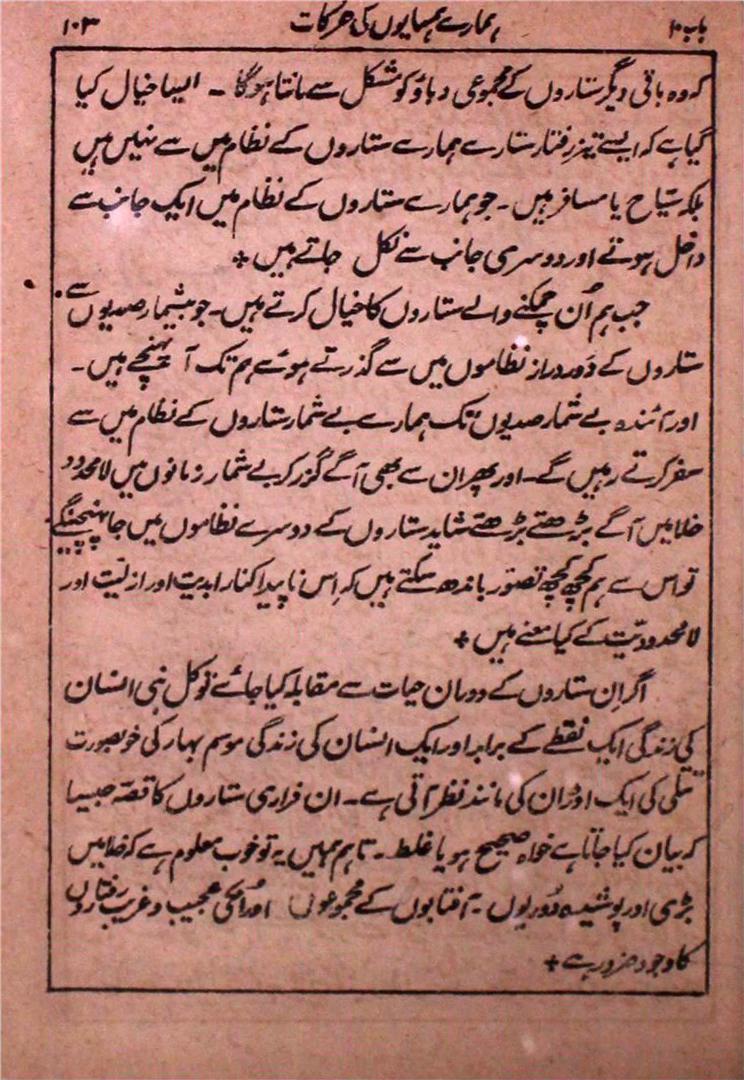 باب ۱۰ ہمارے ہمسایوں کی حرکات ۱۰۳
کہ وہ باقی دیگر ستاروں کے مجموعی دباؤ کو مشکل سے مانتا ہوگا ۔ ایسا خیال کیا
گیا ہے کہ ایسے تیز رفتار ستارے ہمارے ستاروں کے نظام میں سے نہیں ہیں
بلکہ سیّاح یا مسافر ہیں ۔ جو ہمارے ستاروں کے نظام میں ایک جانب سے
داخل ہوتے اور دوسری جانب سے نکل جاتے ہیں +
جب ہم اُن چمکنے والے ستاروں کا خیال کرتے ہیں ۔ جو بیشمار صدیوں سے
ستاروں کے دَور دراز نظاموں میں سے گذرتے ہوئے ہم تک آ پہنچے ہیں ۔
اور آئندہ بے شمار صدیوں تک ہمارے بے شمار ستاروں کے نظام میں سے
سفر کرتے رہیں گے ۔ اور پھر ان سے بھی آگے گزر کر بے شمار زمانوں میں لامحدود
خلا میں آگے بڑھتے بڑھتے شاید ستاروں کے دوسرے نظاموں میں جا پہنچینگے
تو اس سے ہم کچھ کچھ تصوّر باندھ سکتے ہیں کہ اِس ناپیدا کنار ابدیت اور ازلیّت اور
لامحدودیّت کے کیا معنے ہیں +
اگر اِن ستاروں کے دوران حیات سے مقابلہ کیا جائے تو کل بنی انسان
کی زندگی ایک نقطے کے برابر اور ایک انسان کی زندگی موسم بہار کی خوبصورت
تتلی کی ایک اوڑان کی مانند نظر آتی ہے ۔ ان فراری ستاروں کا قصّہ جیسا
کہ بیان کیا جاتا ہے خواہ صحیح ہو یا غلط ۔ تاہم ہمیں یہ تو خوب معلوم ہے کہ خلا میں
بڑی اور پوشیدہ دُوریوں ۔ آفتابوں کے مجموعوں اور اُنکی عجیب و غریب رفتاروں
کا وجود ضرور ہے +